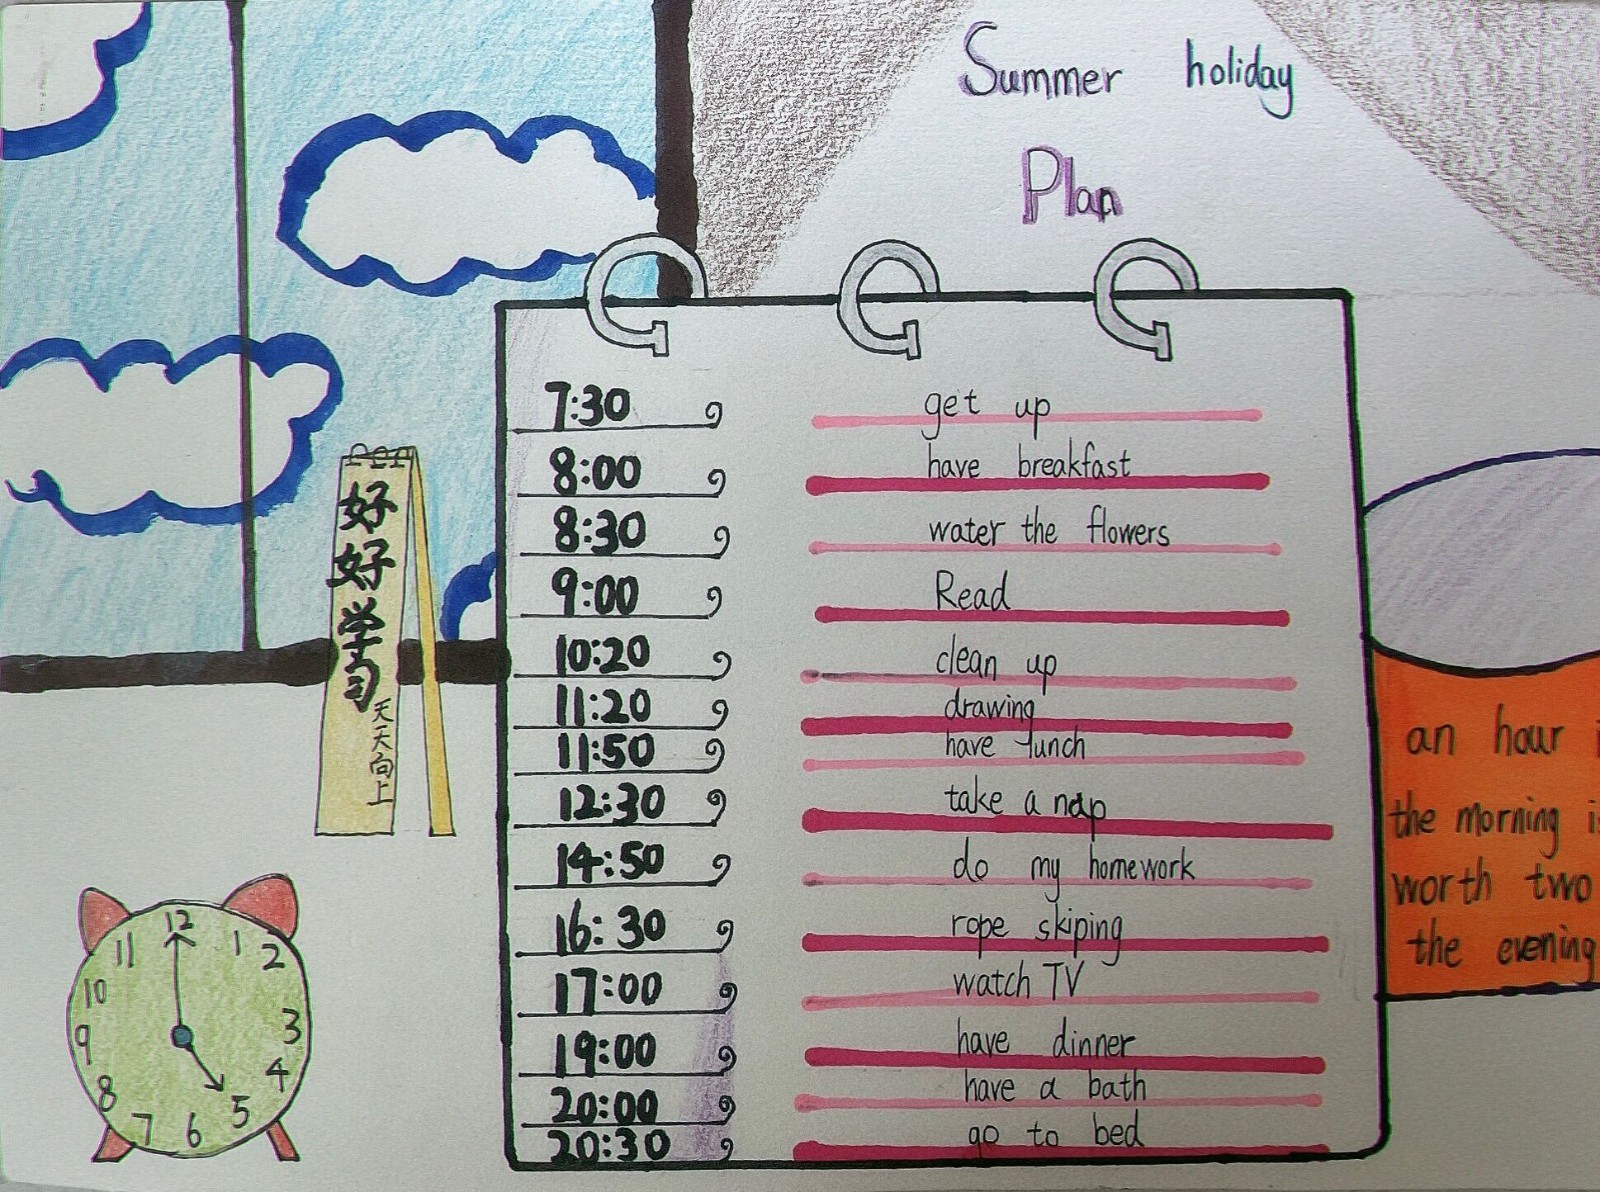 Summer holiday
Plan
7:30 get up
8:00 have breakfast
8:30 water the flowers
9:00 Read
10:20 clean up
11:20 drawing
11:50 have lunch
12:30 take a nap
14:50 do my homework
16:30 rope skiping
17:00 watch TV
19:00 have dinner
20:00 have a bath
20:30 go to bed
好好学习
天天向上
12
1
2
3
4
5
6
7
8
9
10
11
an hour i
the morning is
worth two
the evening